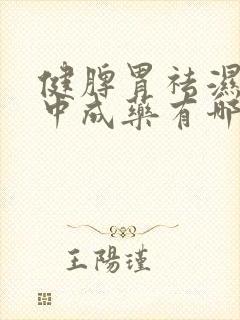 健脾胃祛濕
中成藥有哪
王陽瑾